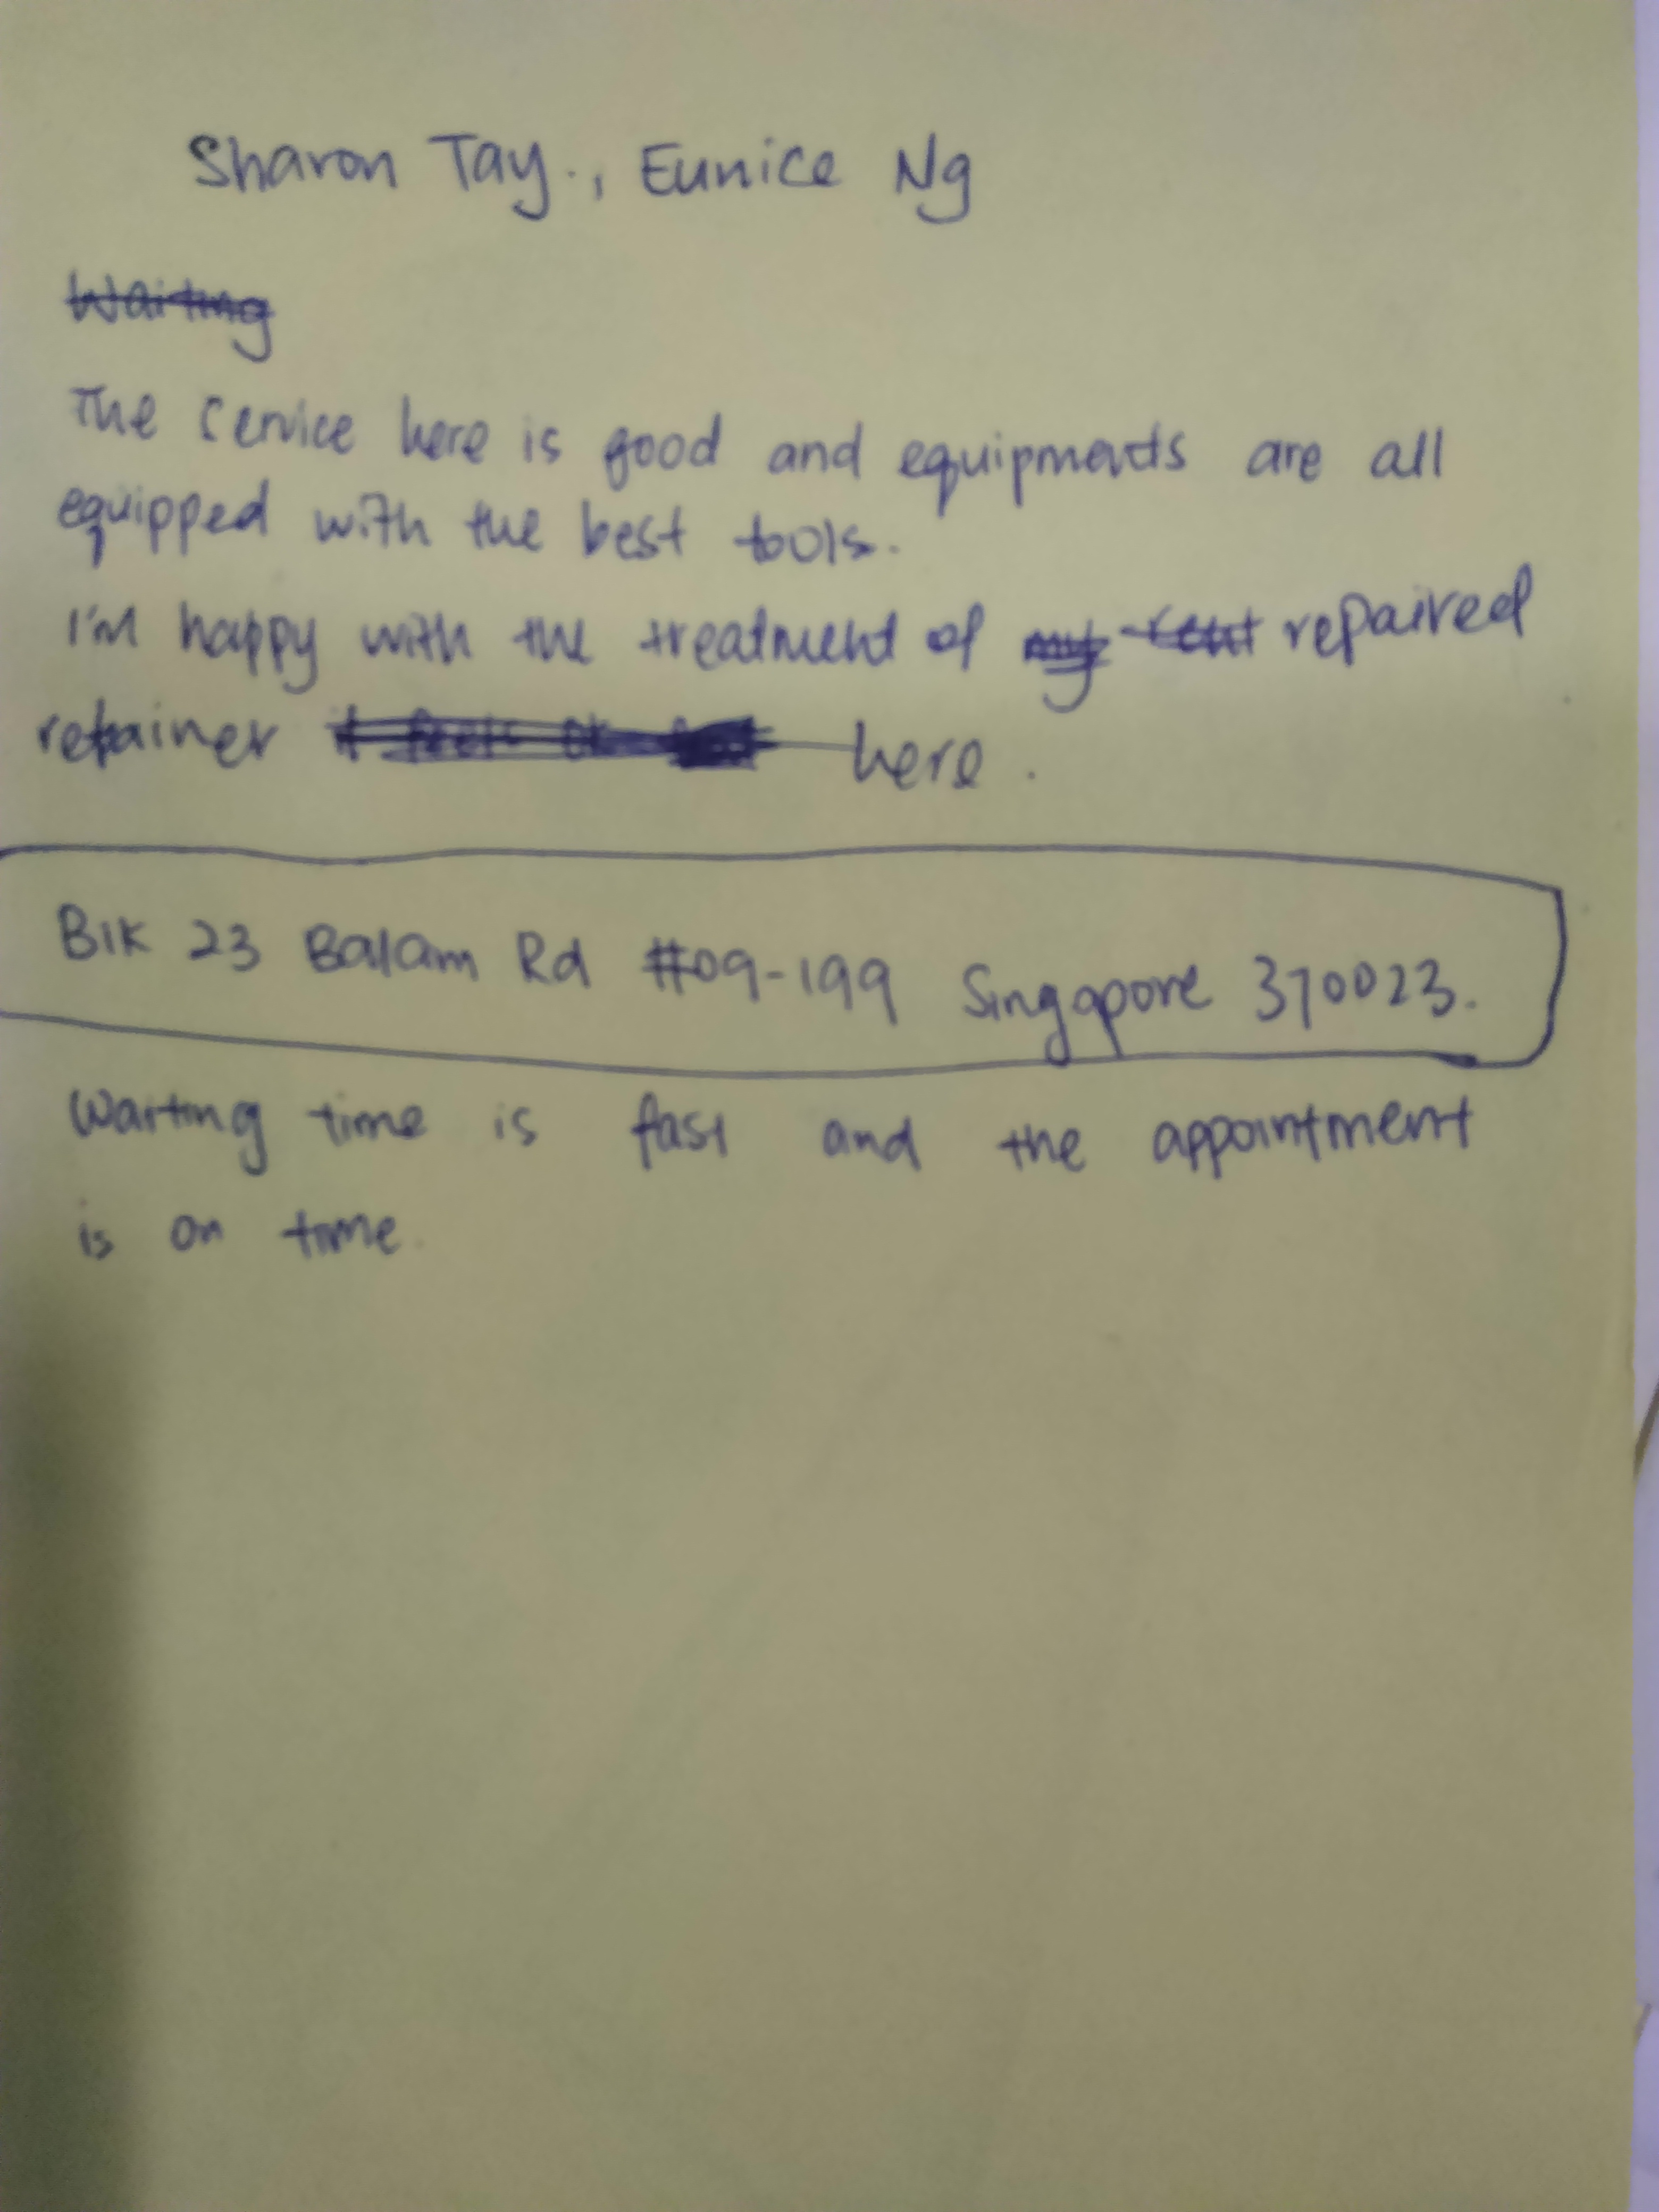 Sharon Tay., Eunice Ng
Waiting
The service here is good and equipments are all
equipped with the best tools.
I'm happy with the treatment of my repaired
retainer here.
Blk 23 Balam Rd #09-199 Singapore 370023.
Waiting time is fast and the appointment
is on time.